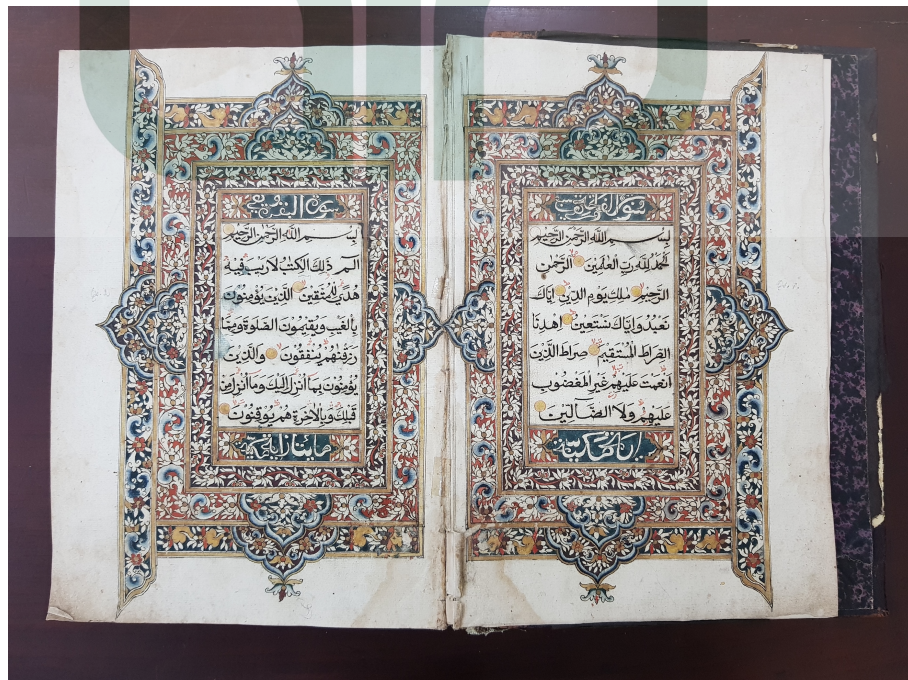 سورة
بِسْمِ اللَّهِ الرَّحْمَنِ الرَّحِيمِ
الْحَمْدُ لِلَّهِ رَبِّ الْعٰلَمِينَ الرَّحْمٰنِ
الرَّحِيمِ مٰلِكِ يَوْمِ الدِّينِ اِيَّاكَ
نَعْبُدُ وَاِيَّاكَ نَسْتَعِينُ اِهْدِنَا
الصِّرَاطَ الْمُسْتَقِيمَ صِرَاطَ الَّذِينَ
اَنْعَمْتَ عَلَيْهِمْ غَيْرِ الْمَغْضُوبِ
عَلَيْهِمْ وَلَا الضَّالِّينَ
سورة البقرة
بِسْمِ اللَّهِ الرَّحْمَنِ الرَّحِيمِ
الٓمٓ ذٰلِكَ الْكِتٰبُ لَا رَيْبَ فِيهِ
هُدًى لِلْمُتَّقِينَ الَّذِينَ يُؤْمِنُونَ
بِالْغَيْبِ وَيُقِيمُونَ الصَّلٰوةَ وَمِمَّا
رَزَقْنٰهُمْ يُنْفِقُونَ وَالَّذِينَ
يُؤْمِنُونَ بِمَا اُنْزِلَ اِلَيْكَ وَمَا اُنْزِلَ مِنْ
قَبْلِكَ وَبِالْاٰخِرَةِ هُمْ يُوقِنُونَ